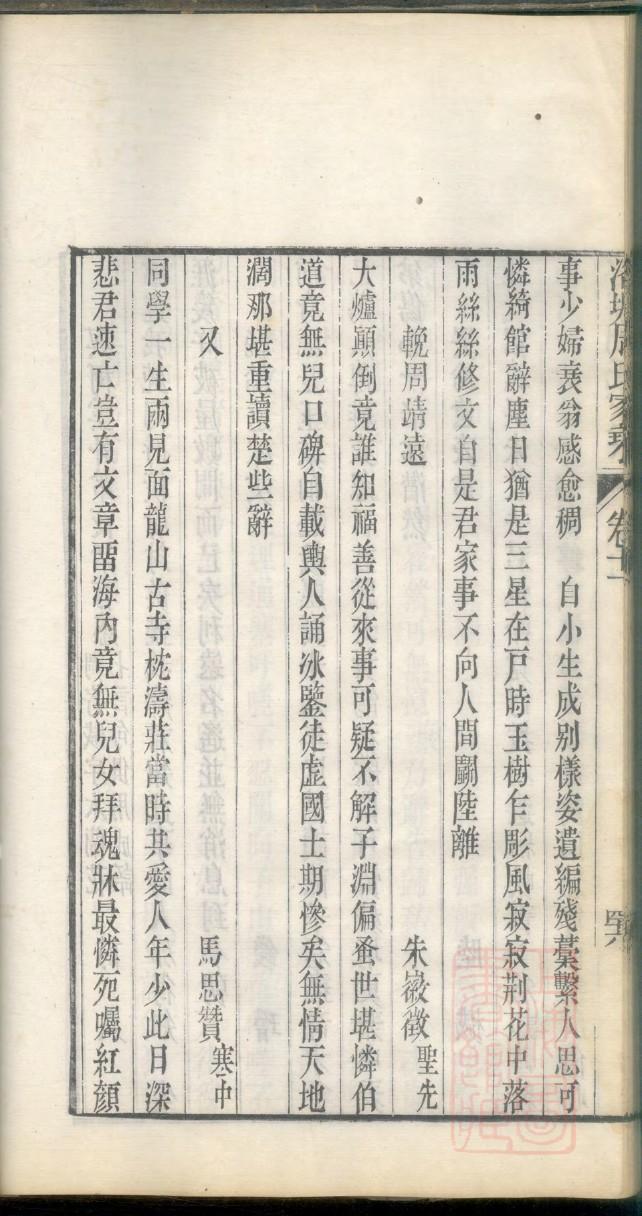 洛塘周氏家乘 卷十二
事少婦衰翁感愈稠 自小生成別樣姿遺編殘藁繫人思可
憐綺館辭塵日猶是三星在戸時玉樹乍彫風寂寂荆花中落
雨絲絲修文自是君家事不向人間鬭陸離
輓周靖遠 朱嶶徵聖先
大爐顚倒竟誰知福善從來事可疑不解子淵偏蚤世堪憐伯
道竟無兒口碑自載輿人誦冰鑒徒虛國士期慘矣無情天地
濶那堪重讀楚些辭
又 馬思贊寒中
同學一生兩見面龍山古寺枕濤莊當時共愛人年少此日深
悲君速亡豈有文章畱海內竟無兒女拜魂牀最憐死囑紅顔